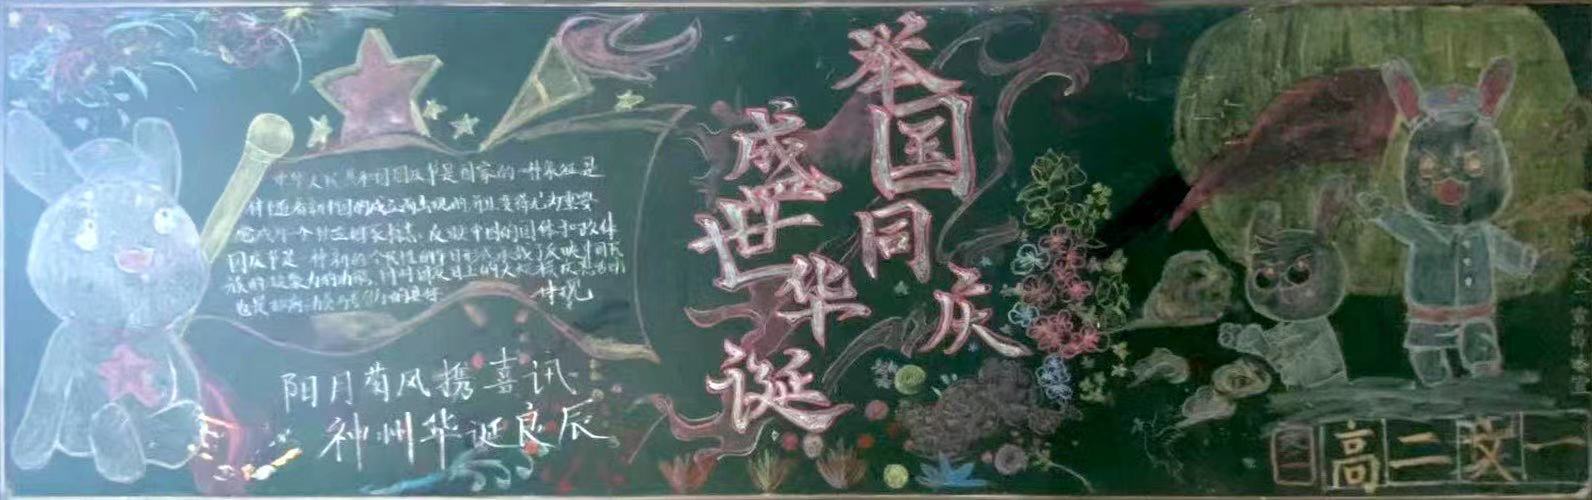 举国同庆
盛世华诞
中华人民共和国国庆节是国家的一种象征是
伴随着新中国的成立而出现的,并且变得尤为重要
它成为一个独立国家标志,反映中国的国体和政体
国庆节是一种新的全民性的节日形式,承载了反映我们国家民
族的凝聚力的功能,同时国庆日上的大规模庆典活动
也是政府动员与号召力的具体
体现
阳月菊风携喜讯
神州华诞良辰
高二文一